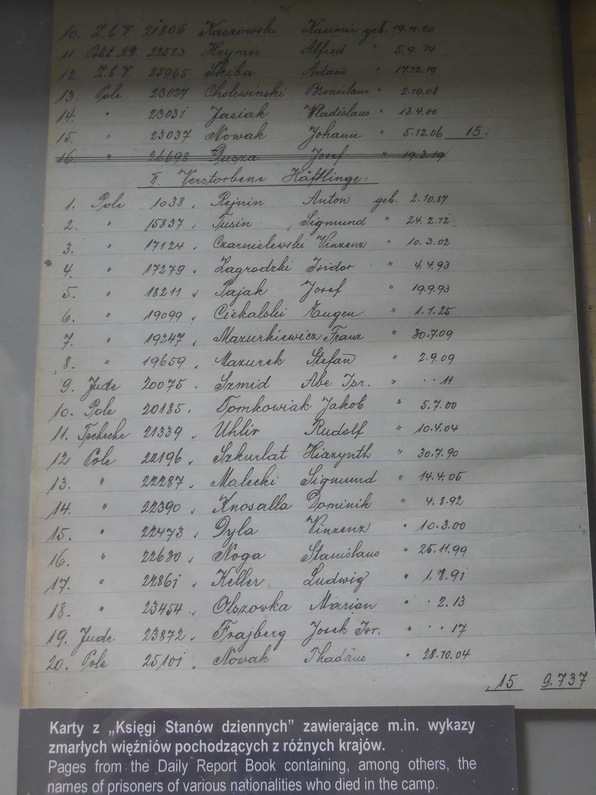 10. Z.b.V. 21806 Kaszowski Kasimir geb. 19.11.20
11. Polit. 22523 Heymer Alfred " 5.9.14
12. Z.b.V. 25965 Skiba Anton " 17.12.19
13. Pole 23027 Cholewinski Bronislaus " 2.10.08
14. " 23031 Jasiak Wladislaus " 13.4.00
15. " 23037 Nowak Johann " 5.12.06 15.
16. " 26698 Josef " 19.3.19
II. Verstorbene Häftlinge:
1. Pole 1038, Rejnin Anton geb. 2.10.87
2. " 15837, Tusin Sigmund " 24.2.12
3. " 17124, Czarnielewski Vinzenz " 10.3.02
4. " 17279, Zagrodzki Isidor " 4.4.93
5. " 18211, Pajak Josef " 19.9.93
6. " 19099, Ciekalski Eugen " 1.1.25
7. " 19247, Mazurkiewicz Franz " 30.7.09
8. " 19659, Mazurek Stefan " 2.9.09
9. Jude 20075, Szmid Abe Isr. " . . 11
10. Pole 20185, Tomkowiak Jakob " 5.7.00
11. Tscheche 21339, Uhlir Rudolf " 10.4.04
12 Pole 22196, Szkurlat Hiazynth " 30.7.90
13. " 22287, Malecki Sigmund " 14.4.05
14. " 22390, Knosalla Dominik " 4.8.92
15. " 22473, Dyla Vinzenz " 10.3.00
16. " 22630, Noga Stanislaus " 25.11.99
17. " 22861, Keller Ludwig " 1.8.91
18. " 23454, Olszowka Marian " . 2.13
19. Jude 23872, Frajberg Josek Isr. " . . 17
20. Pole 25101, Nowak Thadäus " 28.10.04
15 9.737
Karty z „Księgi Stanów dziennych” zawierające m.in. wykazy
zmarłych więźniów pochodzących z różnych krajów.
Pages from the Daily Report Book containing, among others, the
names of prisoners of various nationalities who died in the camp.